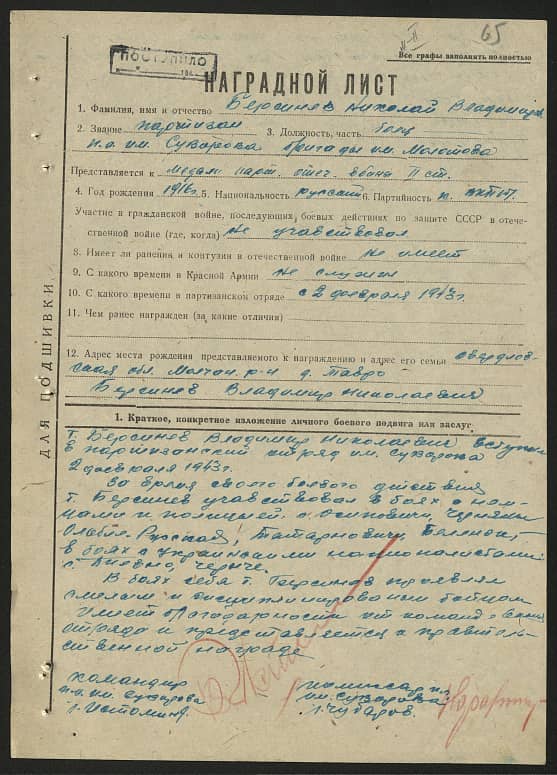 65
Все графы заполнять полностью
ПОСТУПИЛО
НАГРАДНОЙ ЛИСТ
1. Фамилия, имя и отчество Берсинев Николай Владимир
2. Звание партизан 3. Должность, часть боец
п.о. им. Суворова бригады им. Молотова
Представляется к медали парт. отеч. войны II ст.
4. Год рождения 1916 г. 5. Национальность русский 6. Партийность
Участие в гражданской войне, последующих боевых действиях по защите СССР в отече-
ственной войне (где, когда) Не учавствовал
8. Имеет ли ранения и контузии в отечественной войне Не имеет
9. С какого времени в Красной Армии Не служил
10. С какого времени в партизанском отряде с 2 февраля 1943 г.
11. Чем ранее награжден (за какие отличия)
12. Адрес места рождения представляемого к награждению и адрес его семьи свердлов-
ская обл. р-н д. Тавро
Берсинев Владимир Николаевич
ДЛЯ ПОДШИВКИ
1. Краткое, конкретное изложение личного боевого подвига или заслуг
т. Берсинев Владимир Николаевич вступил
в партизанский отряд им. Суворова
2 февраля 1943 г.
За время своего боевого действия
т. Берсинев учавствовал в боях с нем-
цами и полицией с. Осиповичи,
Русская, Татарновичи,
в боях с украинскими националистами
с.
В боях себя т. Берсинев проявлял
смелым и дисциплинированым бойцом
Имеет благодарности от командования
отряда и представляется к правитель-
ственной награде
командир
п.о. им. Суворова
/Истомин/
комиссар п.о.
им. Суворова
/Чубаров.